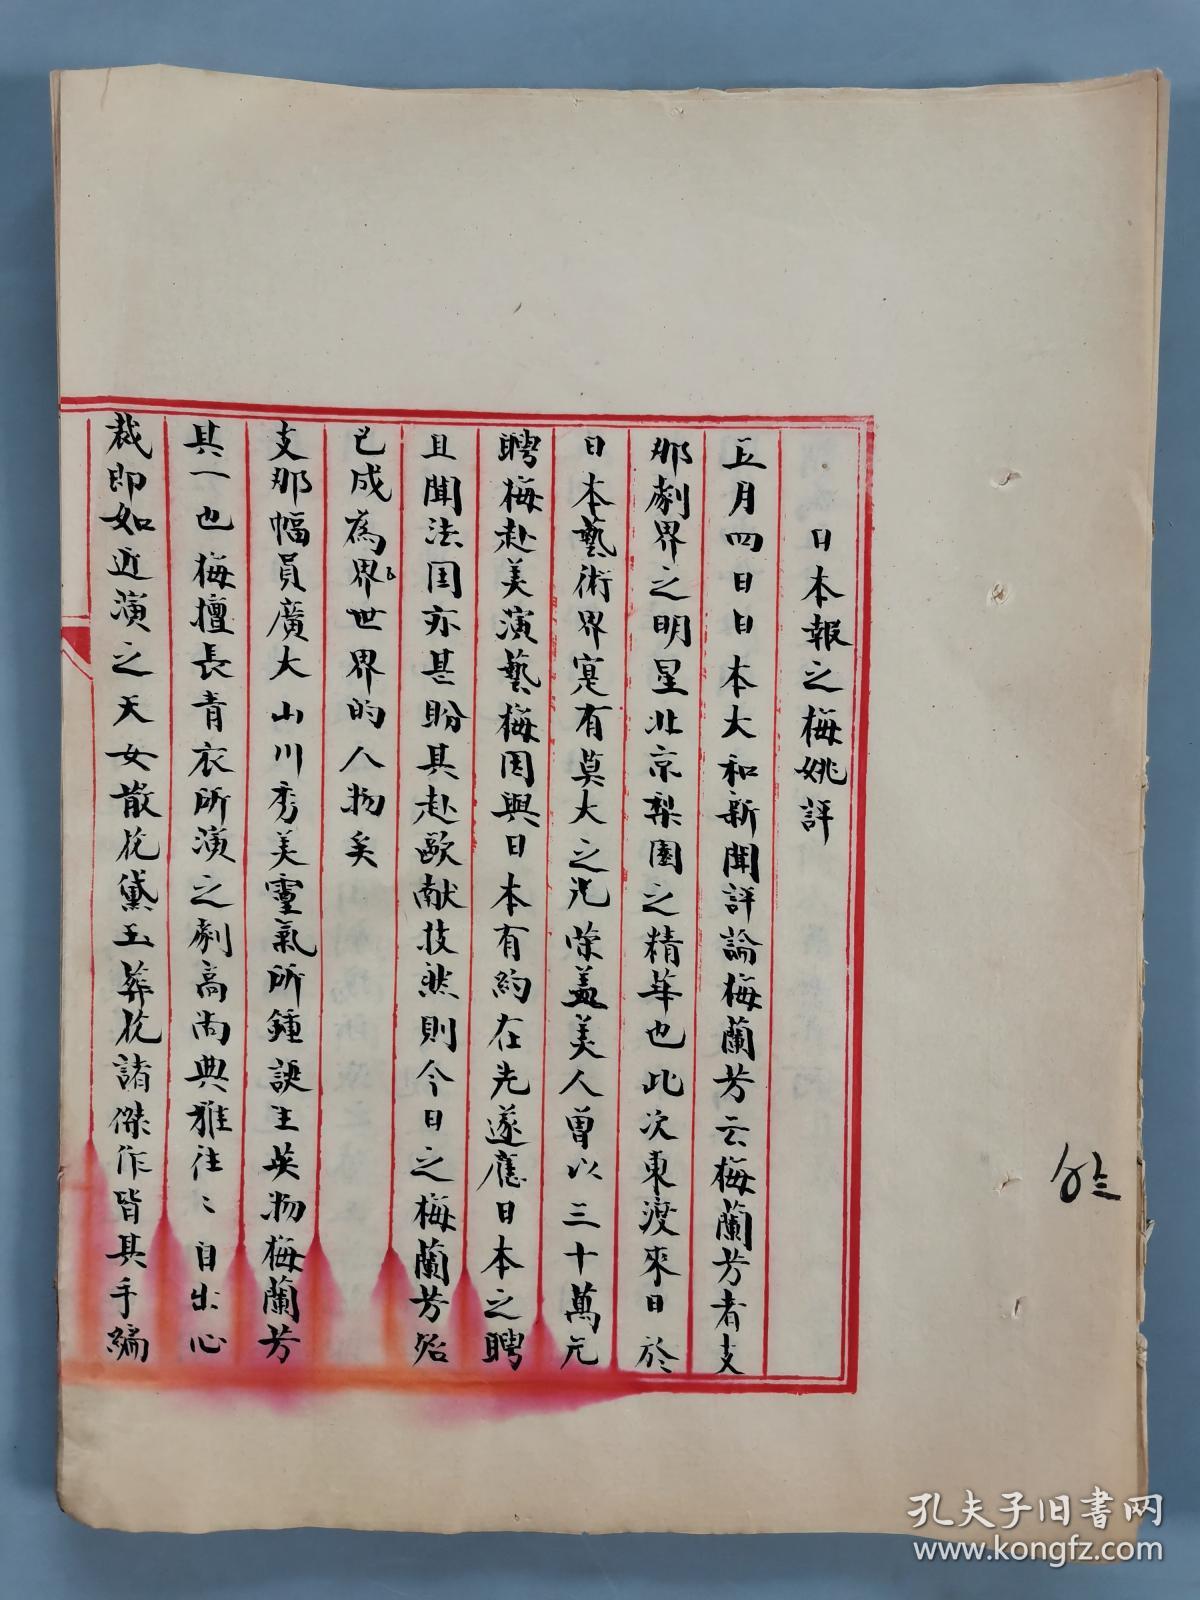 日本報之梅姚評
五月四日日本大和新聞評論梅蘭芳云梅蘭芳者支
那劇界之明星北京梨園之精華也此次東渡來日於
日本藝術界寔有莫大之光荣盖美人曾以三十萬元
聘梅赴美演藝梅因與日本有約在先遂應日本之聘
且聞法国亦甚盼其赴歐献技然則今日之梅蘭芳殆
已成為界世界的人物矣
支那幅員廣大山川秀美靈氣所鍾誕生英物梅蘭芳
其一也梅擅長青衣所演之劇高尚典雅往〻自出心
裁即如近演之天女散花黛玉葬花諸傑作皆其手編
孔夫子旧書网
www.kongfz.com